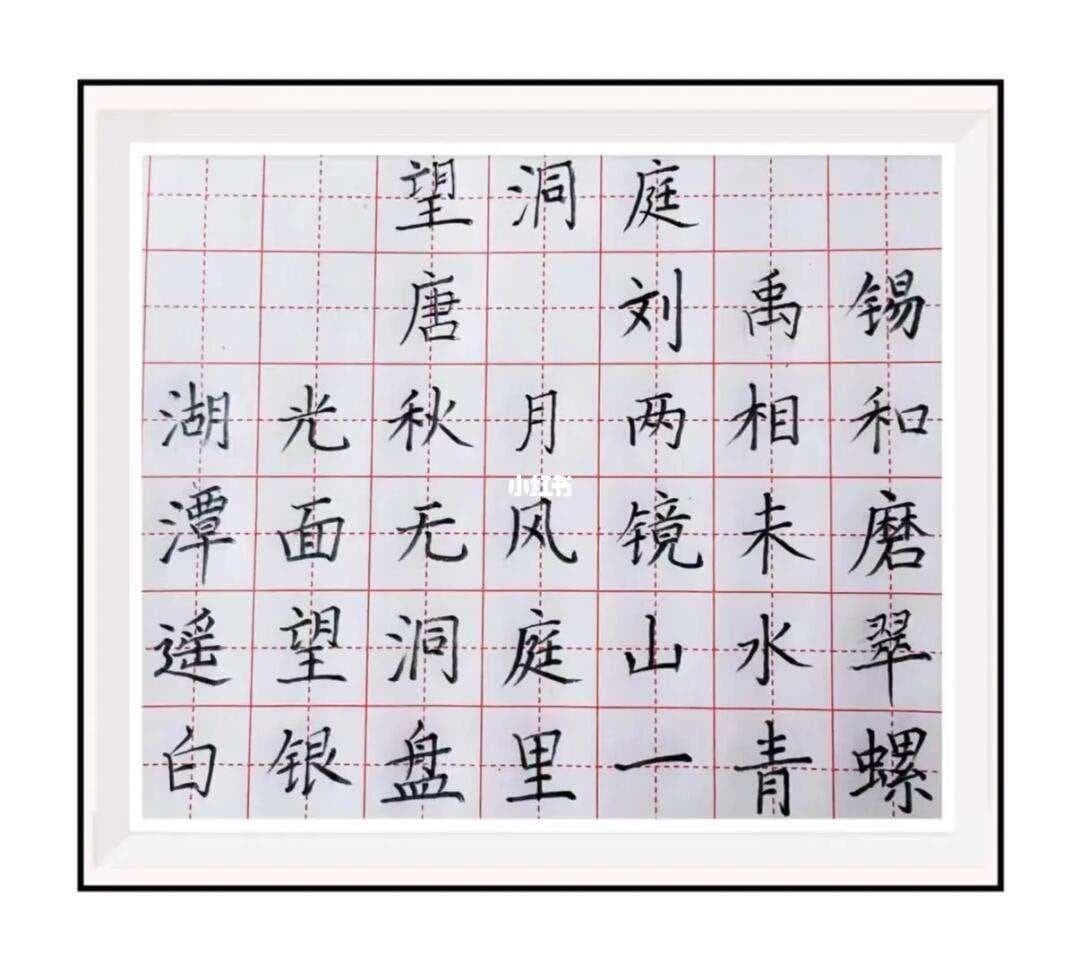 望洞庭
唐 刘禹锡
湖光秋月两相和
潭面无风镜未磨
小红书
遥望洞庭山水翠
白银盘里一青螺